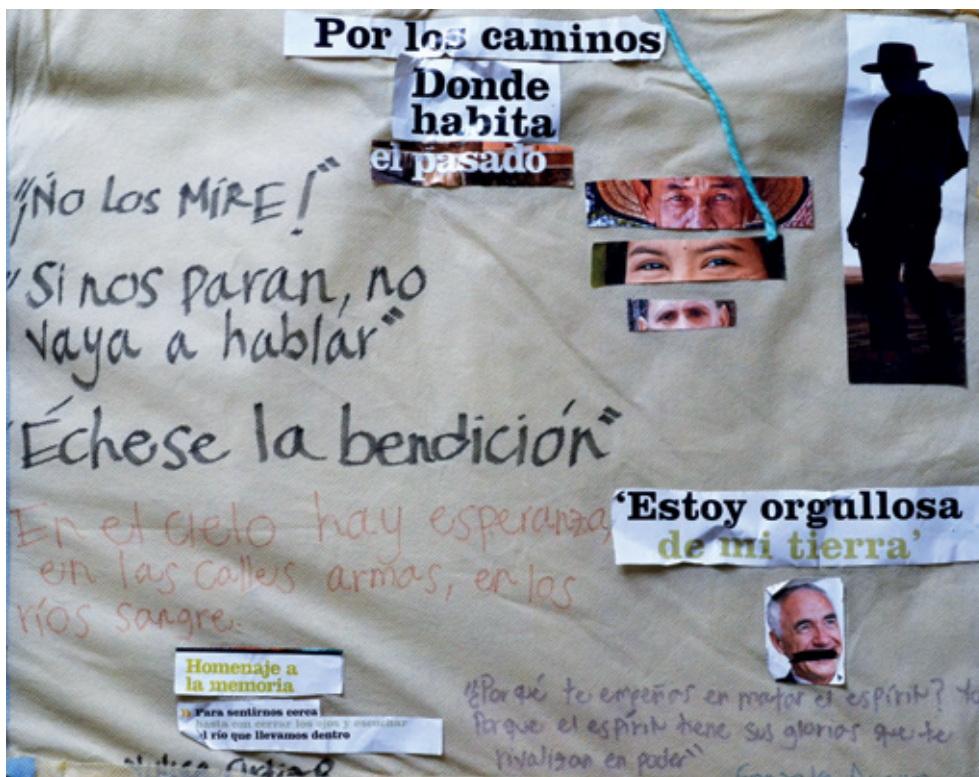 Por los caminos
Donde
habita
el pasado
"¡No Los MÍRE!"
"Si nos paran, no
vaya a hablár"
"Échese la bendición"
'Estoy orgullosa
de mi tierra'
En el cielo hay esperanza,
en las calles armas, en los
ríos sangre.
Homenaje a
la memoria
Para sentirnos cerca
basta con cerrar los ojos y escuchar
el río que llevamos dentro
"¿Por qué te empeñas en matar el espíritu?
Porque el espíritu tiene sus glorias que te
rivalizan en poder"